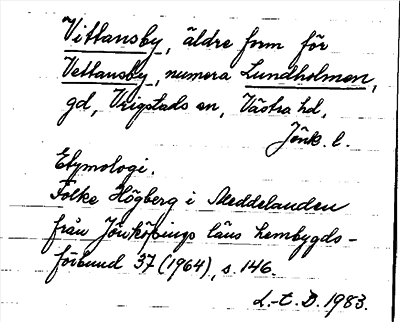 Vittansby, äldre form för
Vettansby, numera Lundholmen,
gd, Vrigstads sn, Västra hd,
Jönk. l.
Etymologi.
Folke Högberg i Meddelanden
från Jönköpings läns hembygds-
förbund 37 (1964), s. 146.
L.-t. D. 1983.